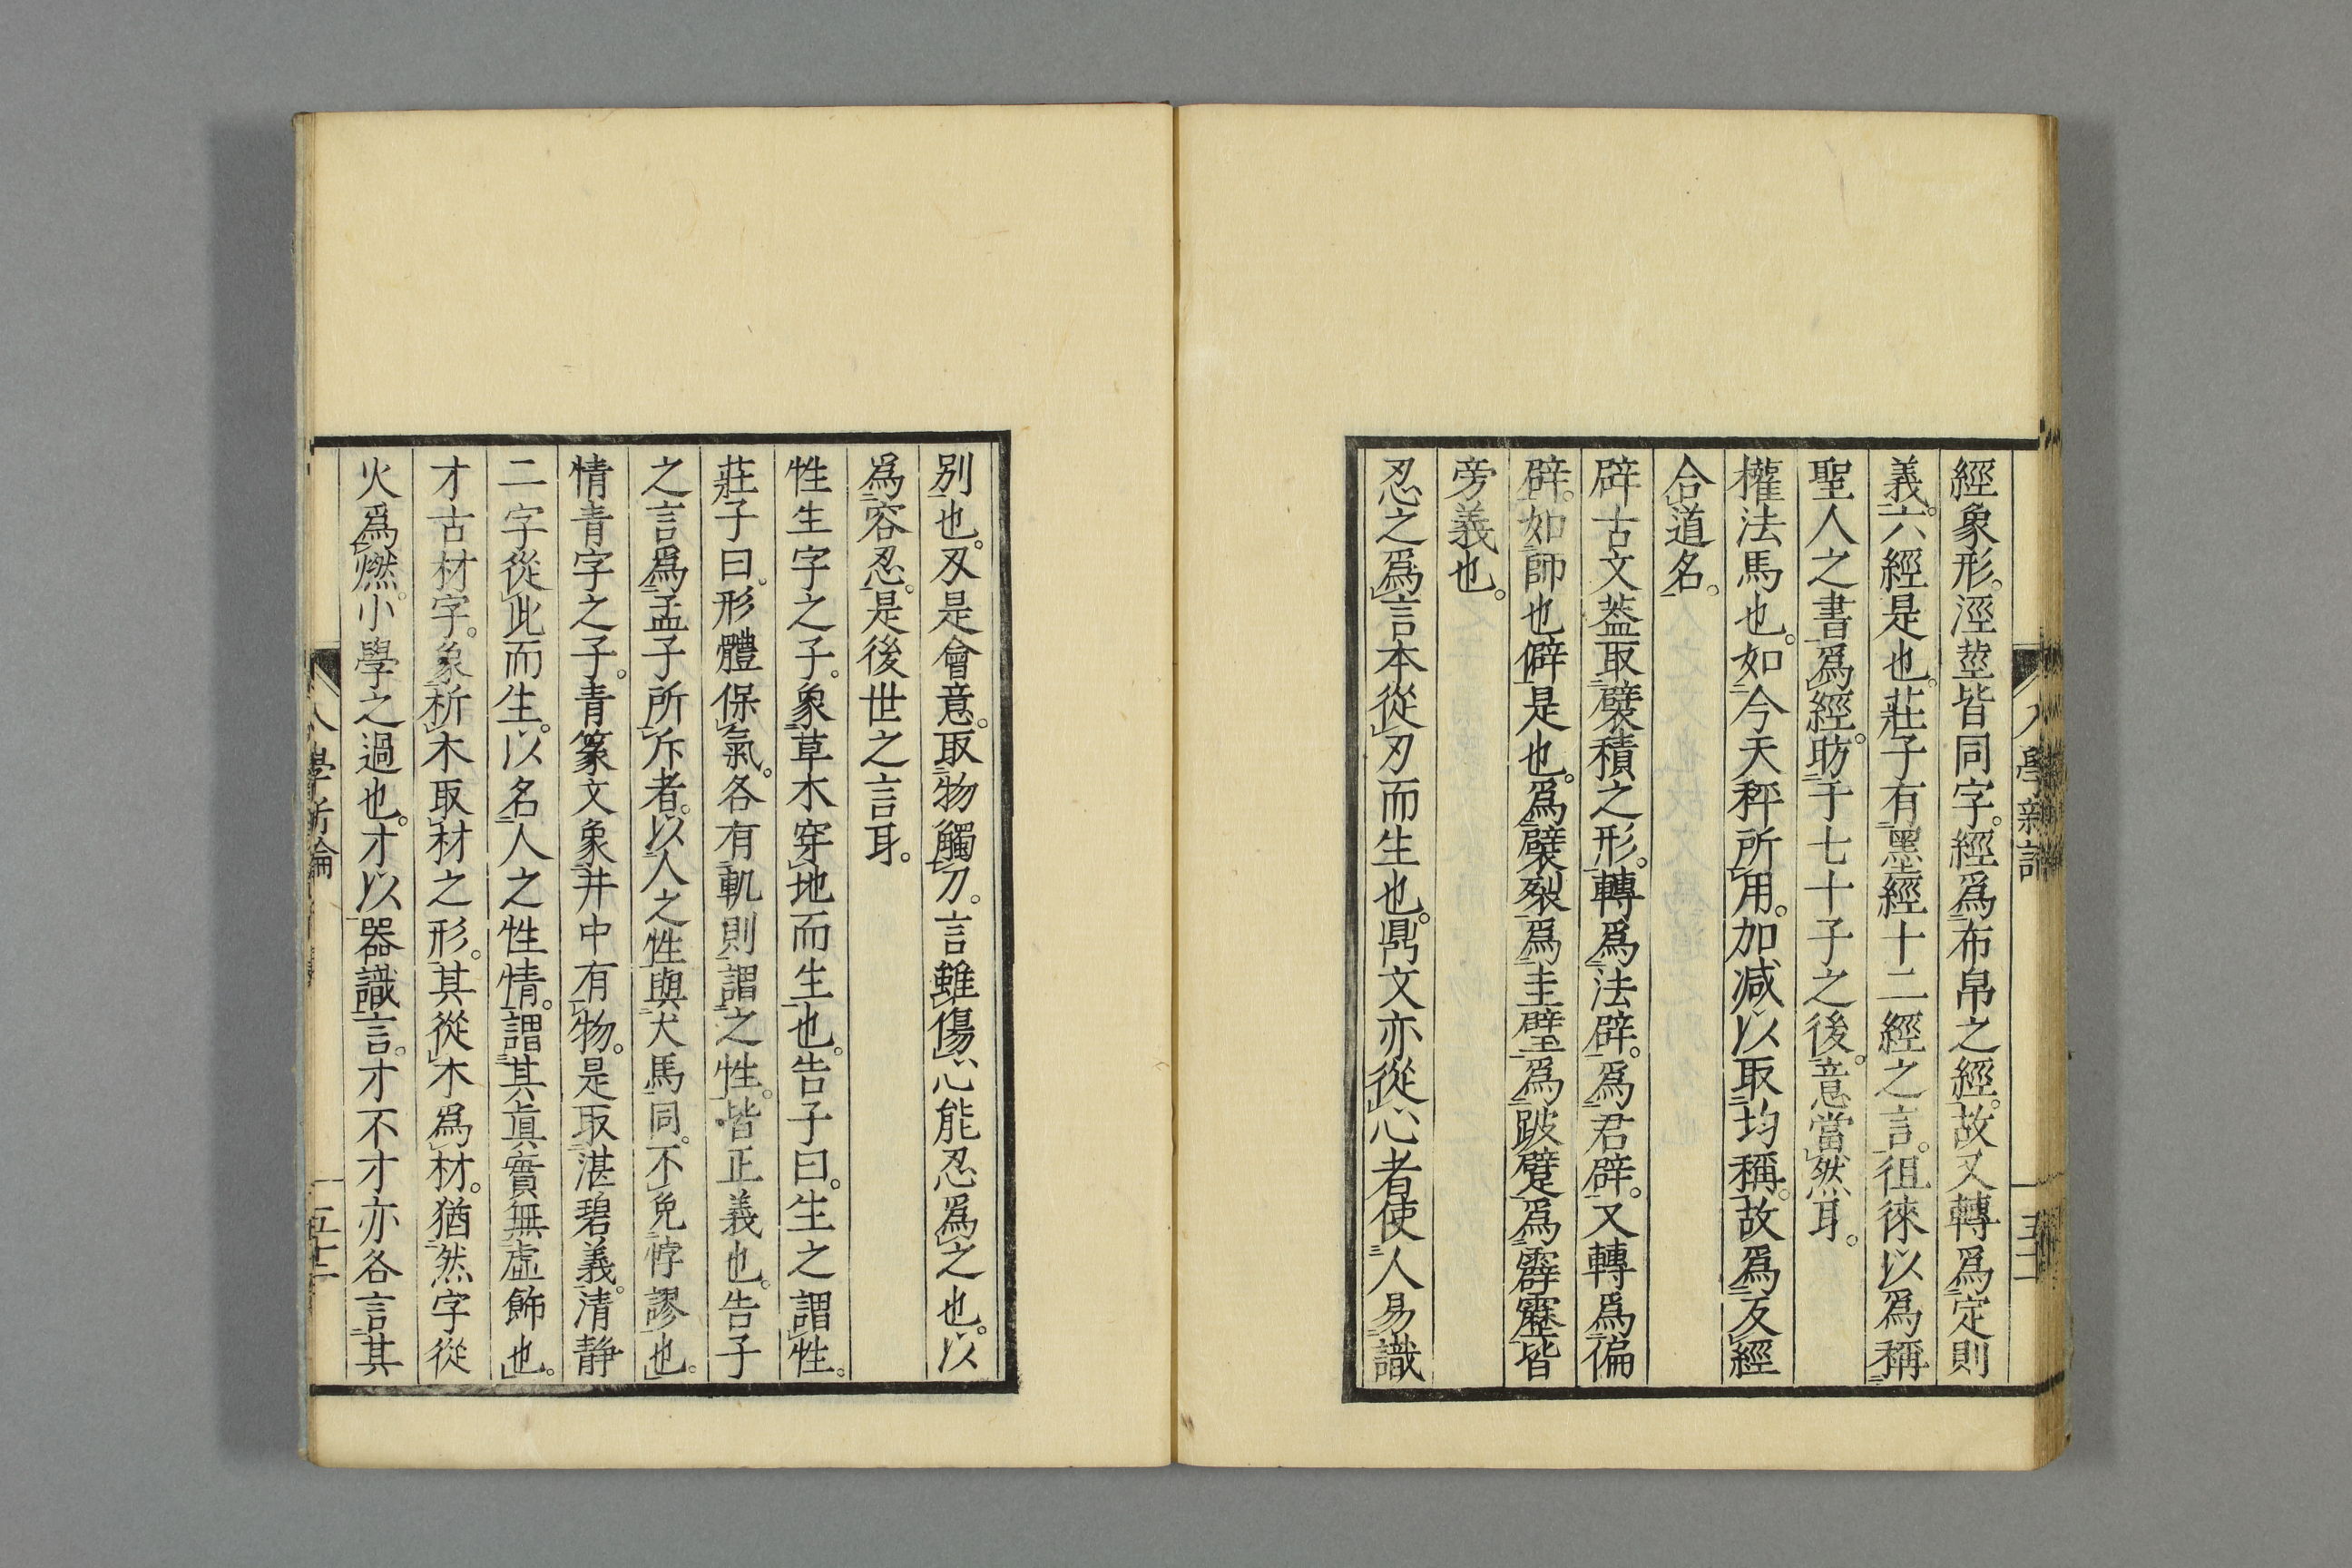 經象形。涇莖皆同字。經爲布帛之經。故又轉爲定則
義。六經是也。莊子有墨經十二經之言。徂徠以爲稱
聖人之書爲經。昉于七十子之後。意當然耳。
權法馬也。如今天秤所用。加減以取均稱。故爲反經
合道名。
辟古文蓋取襞積之形。轉爲法辟。爲君辟。又轉爲偏
辟。如師也僻是也。爲襞裂爲圭璧爲跛躄爲霹靂皆
旁義也。
忍之爲言本從刃而生也。鼎文亦從心者使人易識
別也。刄是會意。取物觸刀。言雖傷心能忍爲之也。以
爲容忍。是後世之言耳。
性生字之子。象草木穿地而生也。告子曰。生之謂性。
莊子曰。形體保氣。各有軌則謂之性。皆正義也。告子
之言爲孟子所斥者。以人之性與犬馬同。不免悖謬也。
情青字之子。青篆文象井中有物。是取湛碧義。清静
二字從此而生。以名人之性情。謂其眞實無虛飾也。
才古材字。象析木取材之形。其從木爲材。猶然字從
火爲燃。小學之過也。才以器識言。才不才亦各言其